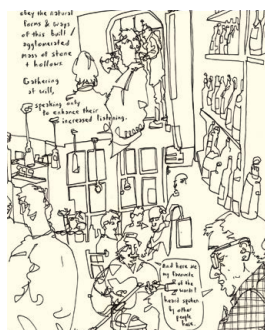 obey the natural
forms & ways
of this built /
agglomerated
mass of stone
& hollows.
Gathering
at will,
speaking only
to enhance their
increased listening.
And here are
my favourite
of the
words I
heard spoken
by other
people
here.